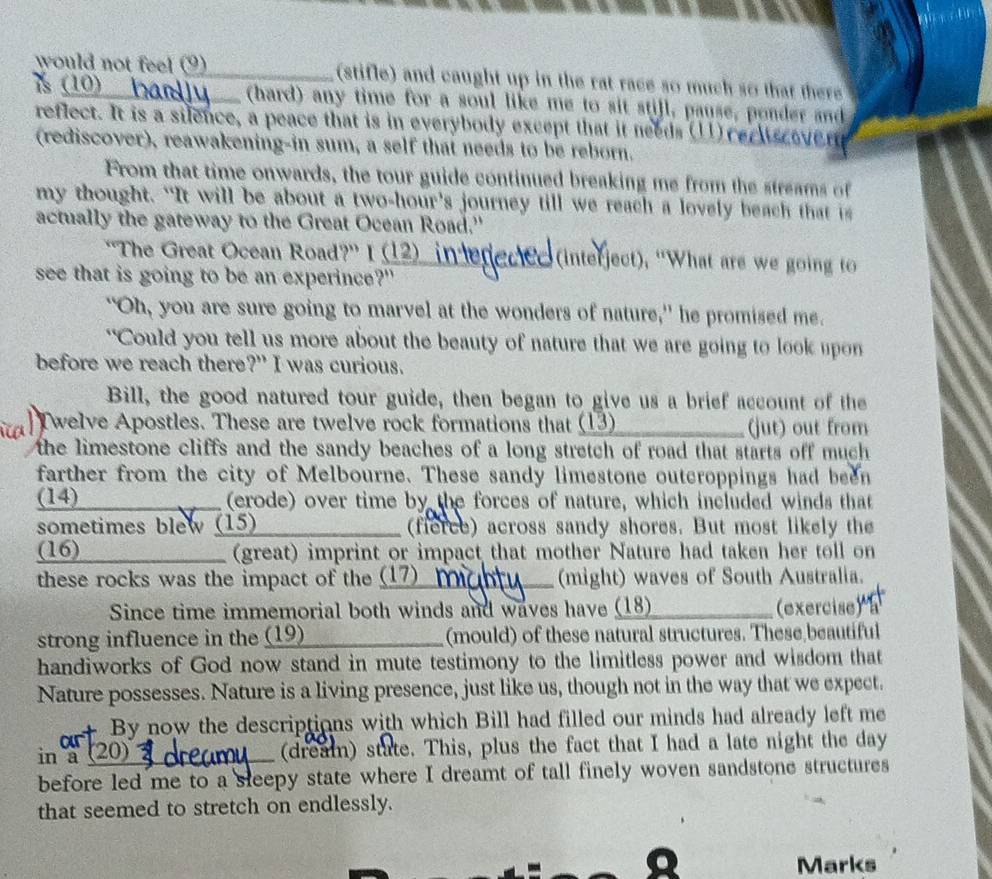 would not feel (9)____________(stifle) and caught up in the rat race so much so that there
v
is (10) hardly (hard) any time for a soul like me to sit still, pause, ponder and
reflect. It is a silence, a peace that is in everybody except that it needs (11) rediscovery
(rediscover), reawakening-in sum, a self that needs to be reborn.
From that time onwards, the tour guide continued breaking me from the streams of
my thought. "It will be about a two-hour's journey till we reach a lovely beach that is
actually the gateway to the Great Ocean Road."
"The Great Ocean Road?" I (12) interjected (interject), "What are we going to
see that is going to be an experince?"
"Oh, you are sure going to marvel at the wonders of nature," he promised me.
"Could you tell us more about the beauty of nature that we are going to look upon
before we reach there?" I was curious.
Bill, the good natured tour guide, then began to give us a brief account of the
Twelve Apostles. These are twelve rock formations that (13)____________(jut) out from
the limestone cliffs and the sandy beaches of a long stretch of road that starts off much
farther from the city of Melbourne. These sandy limestone outcroppings had been
(14)____________(erode) over time by the forces of nature, which included winds that
v adj
sometimes blew (15)____________(fierce) across sandy shores. But most likely the
(16)____________(great) imprint or impact that mother Nature had taken her toll on
these rocks was the impact of the (17) mighty (might) waves of South Australia.
Since time immemorial both winds and waves have (18)____________(exercise) a
strong influence in the (19)____________(mould) of these natural structures. These beautiful
handiworks of God now stand in mute testimony to the limitless power and wisdom that
Nature possesses. Nature is a living presence, just like us, though not in the way that we expect.
By now the descriptions with which Bill had filled our minds had already left me
art adj n
in a (20) dreamy (dream) state. This, plus the fact that I had a late night the day
before led me to a sleepy state where I dreamt of tall finely woven sandstone structures
that seemed to stretch on endlessly.
8 Marks